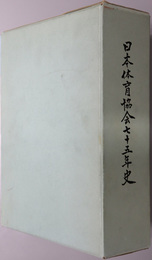 日本体育協会七十五年史